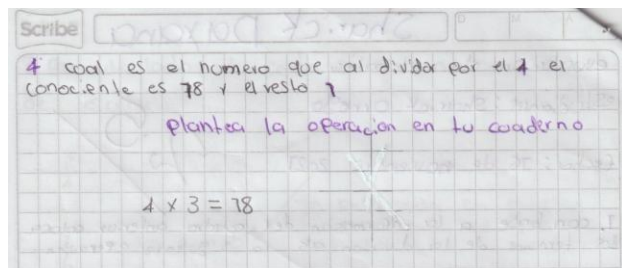 Scribe
D M A
4 coal es el numero que al dividar por el 4 el
conociente es 78 y el resto 1
Plantea la operación en tu cuaderno
4 x 3 = 78